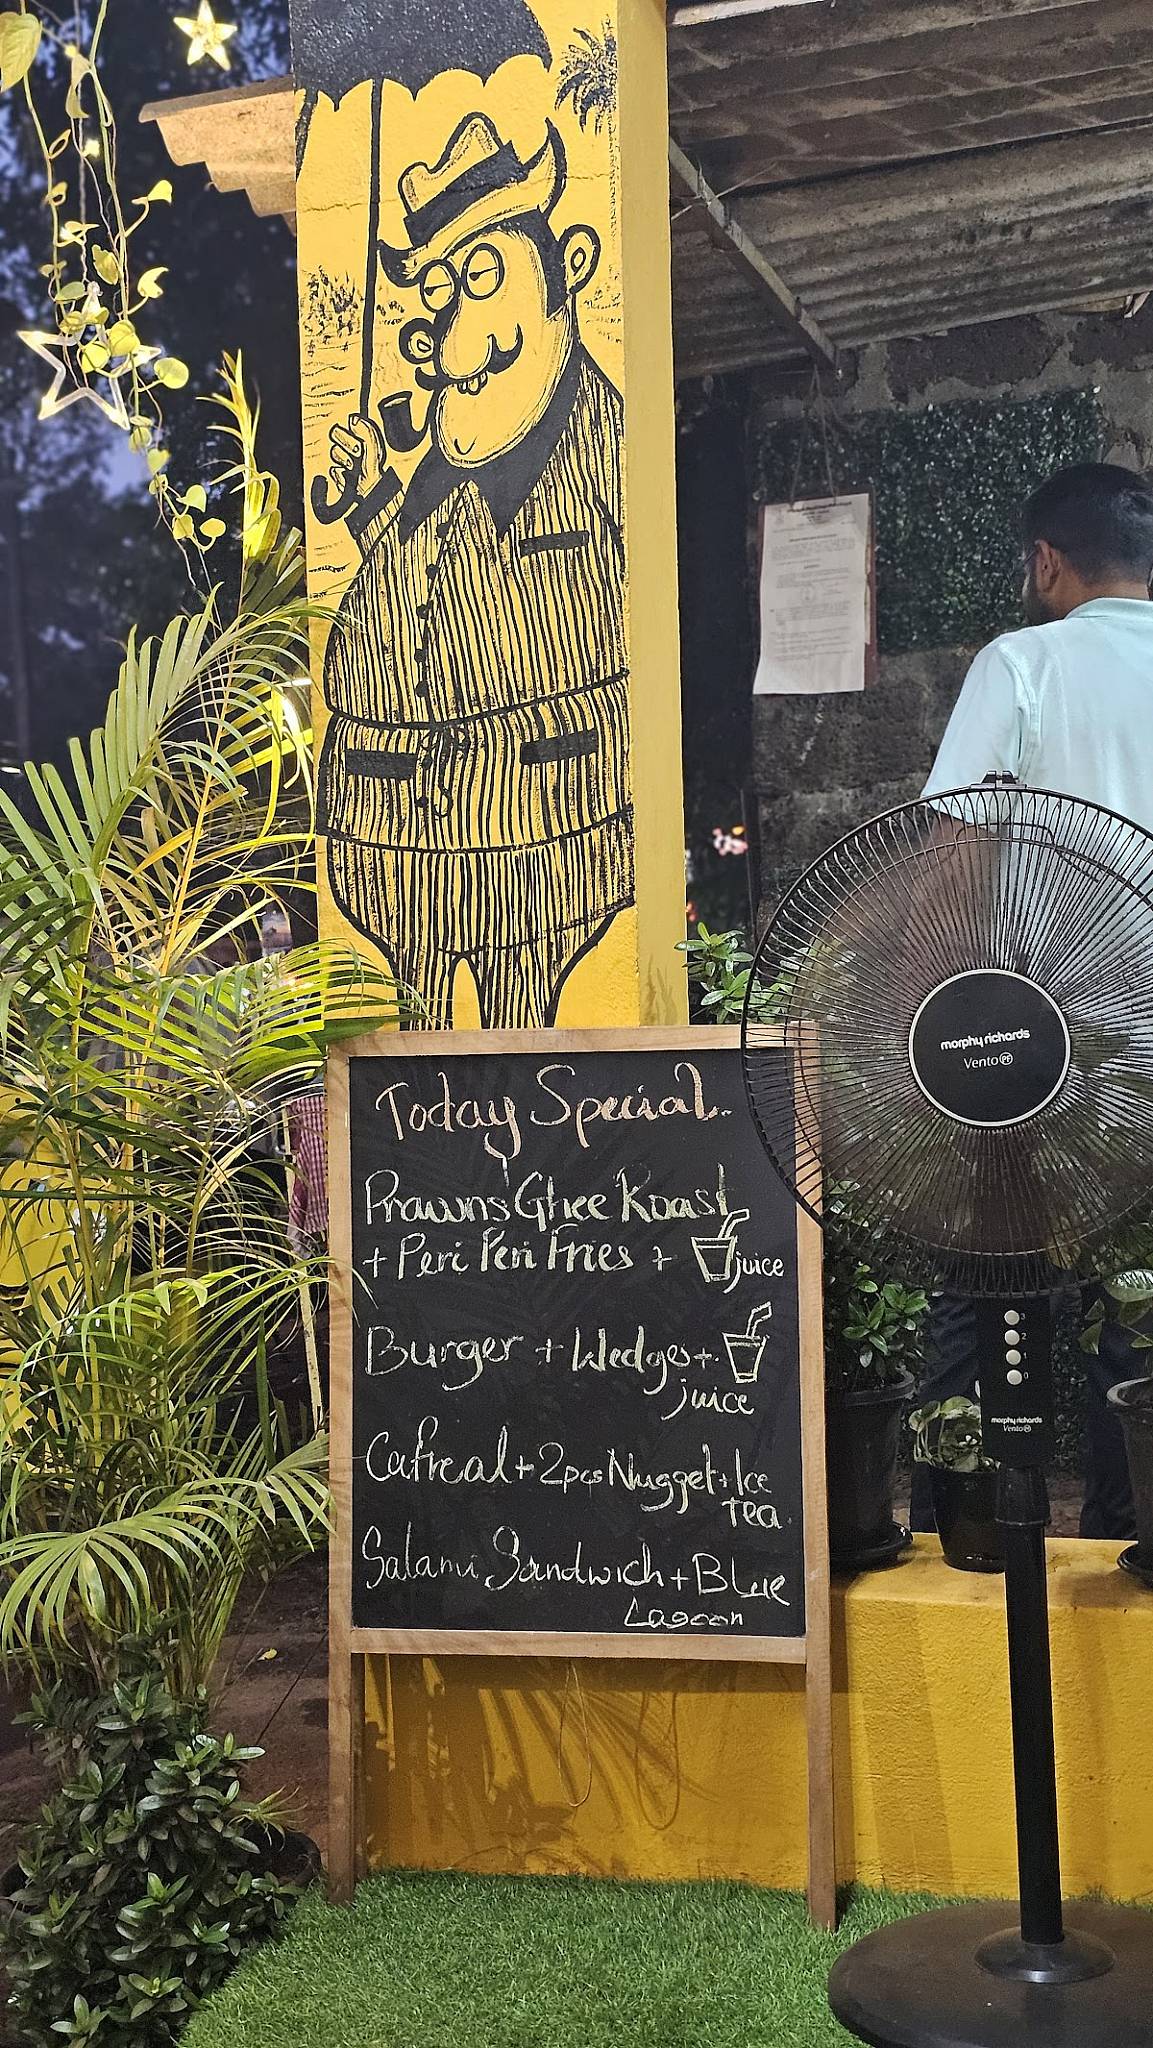 morphy richards
Vento PF
Today Special..
Prawns Ghee Roast
+ Peri Peri Fries + juice
Burger + Wedges +
juice
Cafreal + 2pcs Nugget + Ice
Tea.
Salami Sandwich + Blue
Lagoon
3
2
1
0
morphy richards
Vento PF